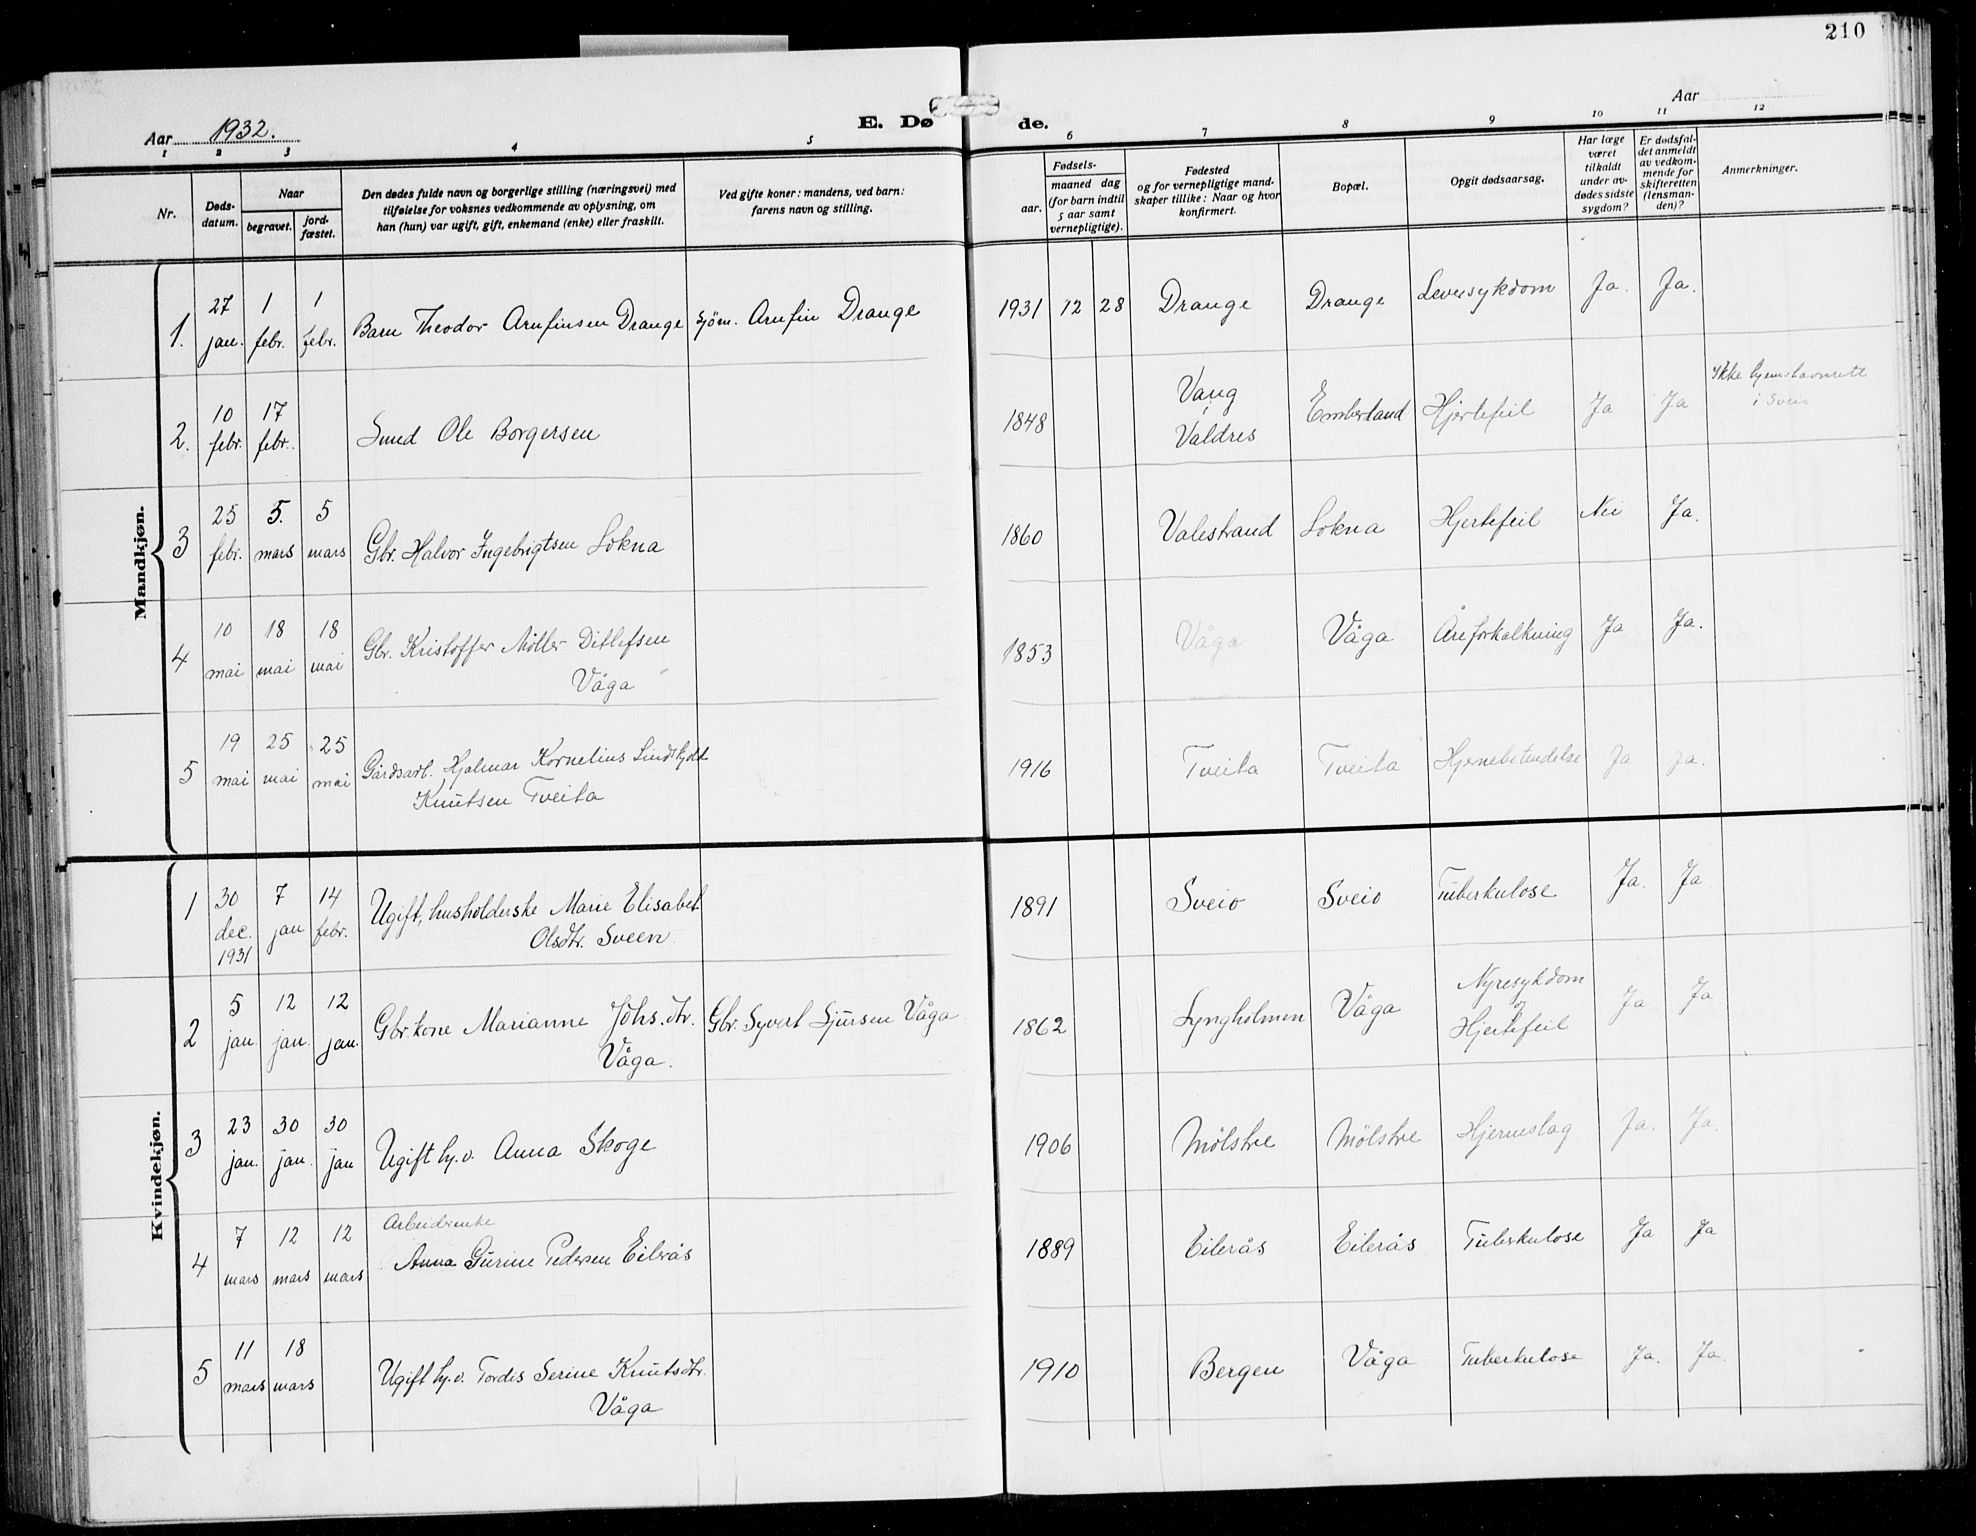 210
Aar 1932.
E. Dø de.
Aar
1 2 3 4 5 6 7 8 9 10 11 12
Nr.
Døds-
datum.
Naar
begravet.
jord-
fæstet.
Den dødes fulde navn og borgerlige stilling (næringsvei) med
tilføielse for voksnes vedkommende av oplysning, om
han (hun) var ugift, gift, enkemand (enke) eller fraskilt.
Ved gifte koner: mandens, ved barn:
farens navn og stilling.
Fødsels-
aar.
maaned dag
(for barn indtil
5 aar samt
vernepligtige).
Fødested
og for vernepligtige mand-
skaper tillike: Naar og hvor
konfirmert.
Bopæl.
Opgit dødsaarsag.
Har læge
været
tilkaldt
under av-
dødes sidste
sygdom?
Er dødsfal-
det anmeldt
av vedkom-
mende for
skifteretten
(lensman-
den)?
Anmerkninger.
Mandkjøn.
1. 27 jan. 1 febr. 1 febr. Barn Theodor Arnfinsen Drange Sjøm. Arnfin Drange 1931 12 28 Drange Drange Leversykdom Ja. Ja.
2. 10 febr. 17 febr. Smed Ole Borgersen 1848 Vang i Valdres Emberland Hjertefeil Ja Ja Ikke hjemstavnsrett
i Sveio
3 25 febr. 5. mars 5 mars Gbr. Halvor Ingebrigtsen Lokna 1860 Valestrand Lokna Hjertefeil Nei Ja.
4 10 mai 18 mai 18 mai Gbr. Kristoffer Møller Ditlefsen
Våga 1853 Våga Våga Åreforkalkning Ja Ja.
5 19 mai 25 mai 25 mai Gårdsarb. Hjalmar Kornelius Lindskjold
Knutsen Tveita 1916 Tveita Tveita Hjernebetendelse Ja Ja.
Kvindekjøn.
1 30 dec. 1931 7 jan 14 febr. Ugift, husholderske Marie Elisabet
Olsdtr. Sveen 1891 Sveio Sveio Tuberkulose Ja. Ja
2 5 jan. 12 jan. 12 jan. Gbr. kone Marianne Johs.dtr.
Våga. Gbr. Syvert Sjursen Våga. 1862 Lyngholmen Våga Nyresykdom
og
Hjertefeil Ja. Ja
3 23 jan. 30 jan. 30 jan Ugift hj.v. Anna Skoge 1906 Mølstre Mølstre Hjerneslag Ja. Ja.
4 7 mars 12 mars 12 mars Arbeiderenke
Anna Gurine Pedersen Eilerås 1889 Eilerås Eilerås Tuberkulose Ja Ja
5 11 mars 18 mars Ugift hj.v. Tordis Serine Knutsdtr.
Våga 1910 Bergen Våga Tuberkulose Ja. Ja.